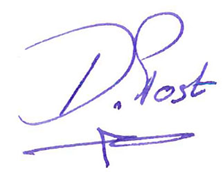 D. Post